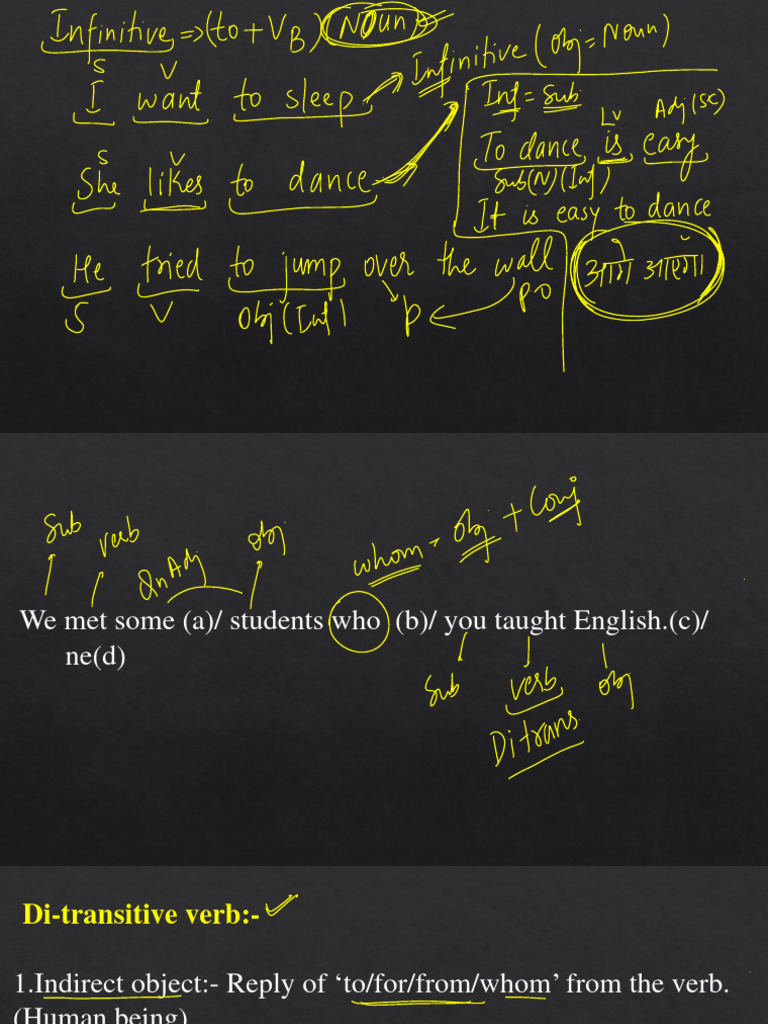 Infinitive => (to + V_B) (Noun)
Infinitive (obj = Noun)
S V
I want to sleep
Inf = Sub
Lv Adj (SC)
To dance is easy
Sub(N) (Inf)
It is easy to dance
S V
She likes to dance
He tried to jump over the wall
S V Obj (Inf) P PO
आगे आएगा
Sub verb QnAdj obj
whom = Obj + Conj
We met some (a)/ students who (b)/ you taught English.(c)/
ne(d)
Sub verb obj
Ditrans
Di-transitive verb:-
1.Indirect object:- Reply of ‘to/for/from/whom’ from the verb.
(Human being)